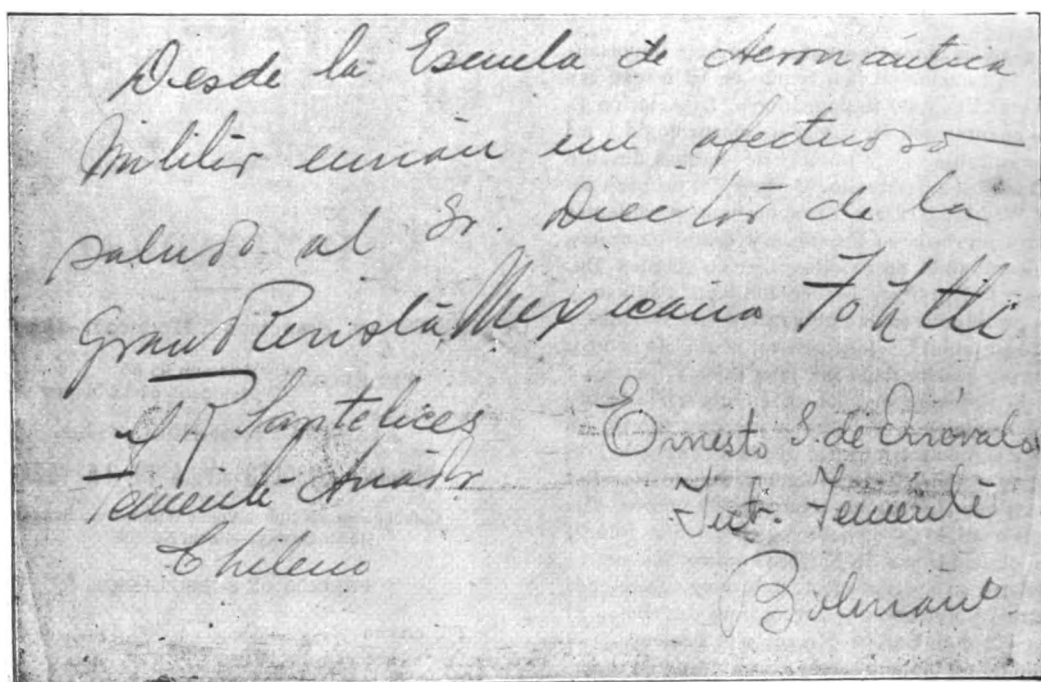 Desde la Escuela de Aeronáutica
Militar envian un afectuoso
saludo al Sr. Director de la
gran Revista Mexicana Tohtli
Santelices
Teniente Aviador
Chileno
Ernesto S. de
Sub. Teniente
Boliviano.